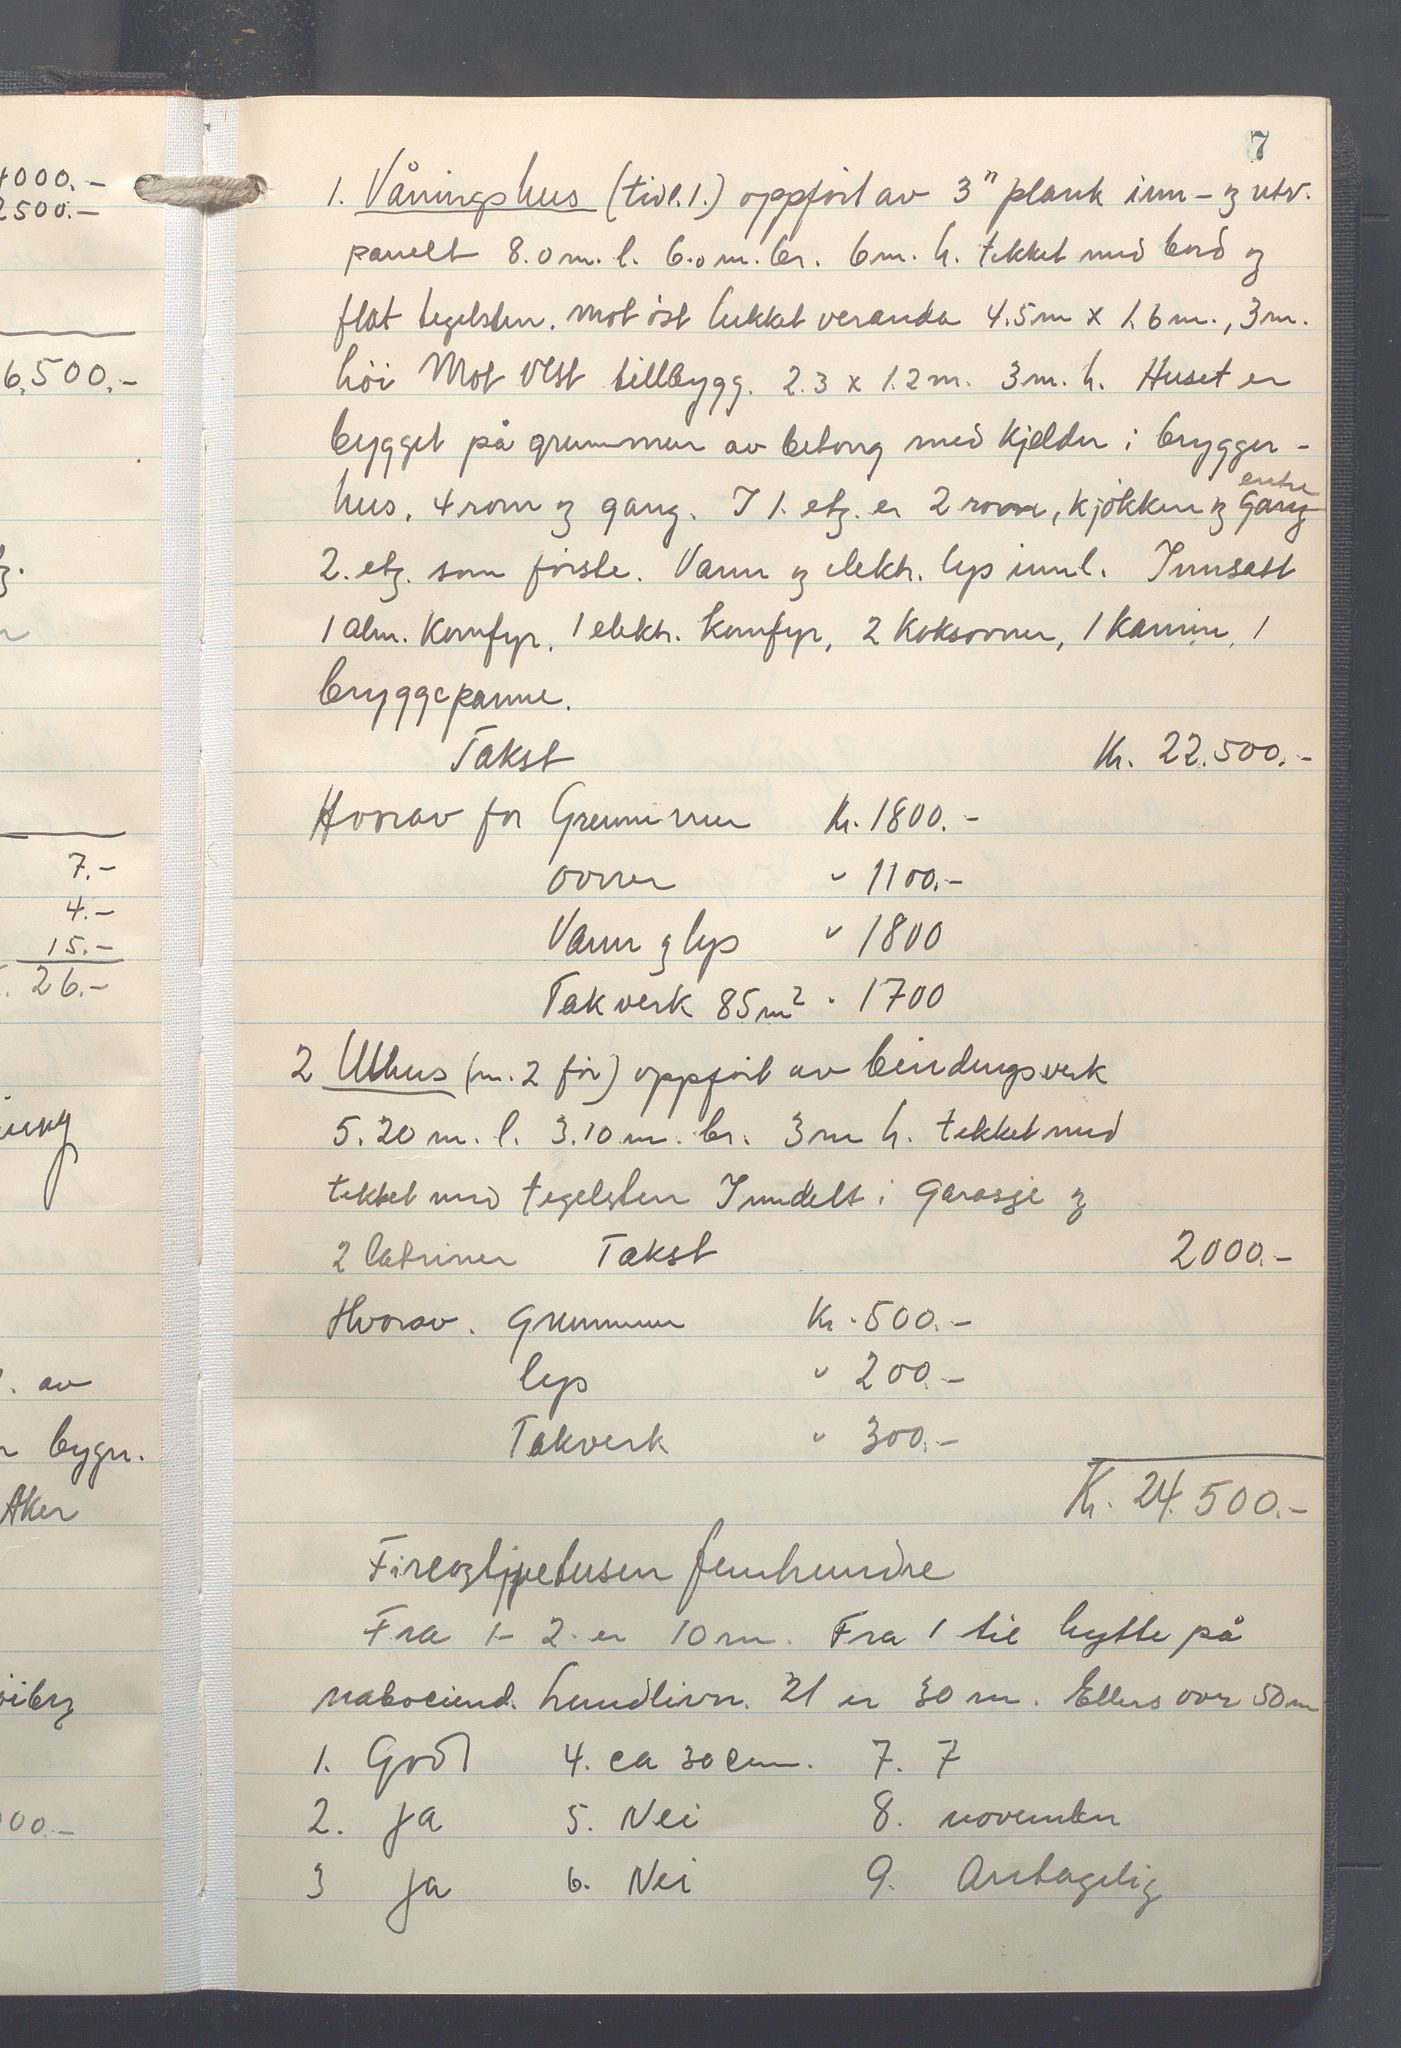 7
1. Våningshus (tidl. 1.) oppført av 3" plank inn- og utv.
panelt 8.0 m. l. 6.0 m. br. 6 m. h. tekket med bord og
flat tegelsten. Mot öst lukket veranda 4.5 m x 1.6 m., 3 m.
höi Mot vest tillbygg. 2.3 x 1.2 m. 3 m. h. Huset er
bygget på grunnmur av betong med kjelder i brygger-
hus, 4 rom og gang. I 1. etg. er 2 rom, kjökken og gang entre
2. etg. som förste. Vann og elektr. lys innl. Innsatt
1 alm. Komfyr, 1 elektr. komfyr, 2 koksovner, 1 kamin, 1
bryggepanne.
Takst Kr. 22.500.-
Hvorav for Grunnmur Kr. 1800.-
ovner " 1100.-
Vann og lys " 1800
Takverk 85 m² " 1700
2 Uthus (m. 2 för) oppfört av bindingsverk
5.20 m. l. 3.10 m. br. 3 m h. tekket med
tekket med tegelsten Inndelt i garasje og
2 latriner Takst 2000.-
Hvorav. grunnmur Kr. 500.-
lys " 200.-
Takverk " 300.-
Kr. 24.500.-
Fireogtjuetusen femhundre
Fra 1- 2 er 10 m. Fra 1 til hytte på
naboeiend. 21 er 30 m. Ellers over 50 m
1. God 4. ca 30 cm. 7. 7
2. ja 5. Nei 8. november
3 ja 6. Nei 9. Antagelig
4000.-
2500.-
6.500.-
7.-
4.-
15.-
26.-
. av
bygn.
Aker
00.-